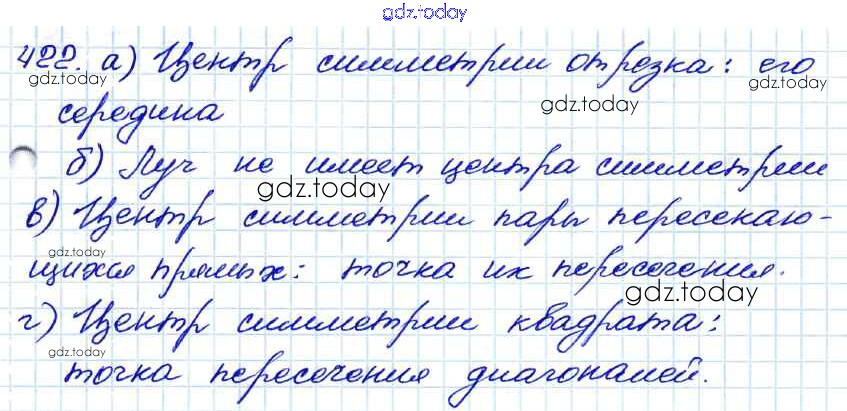 gdz.today
422. а) Центр симметрии отрезка: его
gdz.today gdz.today gdz.today
середина
б) Луч не имеет центра симметрии
gdz.today
в) Центр симметрии пары пересекаю-
gdz.today
щихся прямых: точка их пересечения.
gdz.today
г) Центр симметрии квадрата:
gdz.today
точка пересечения диагоналей.